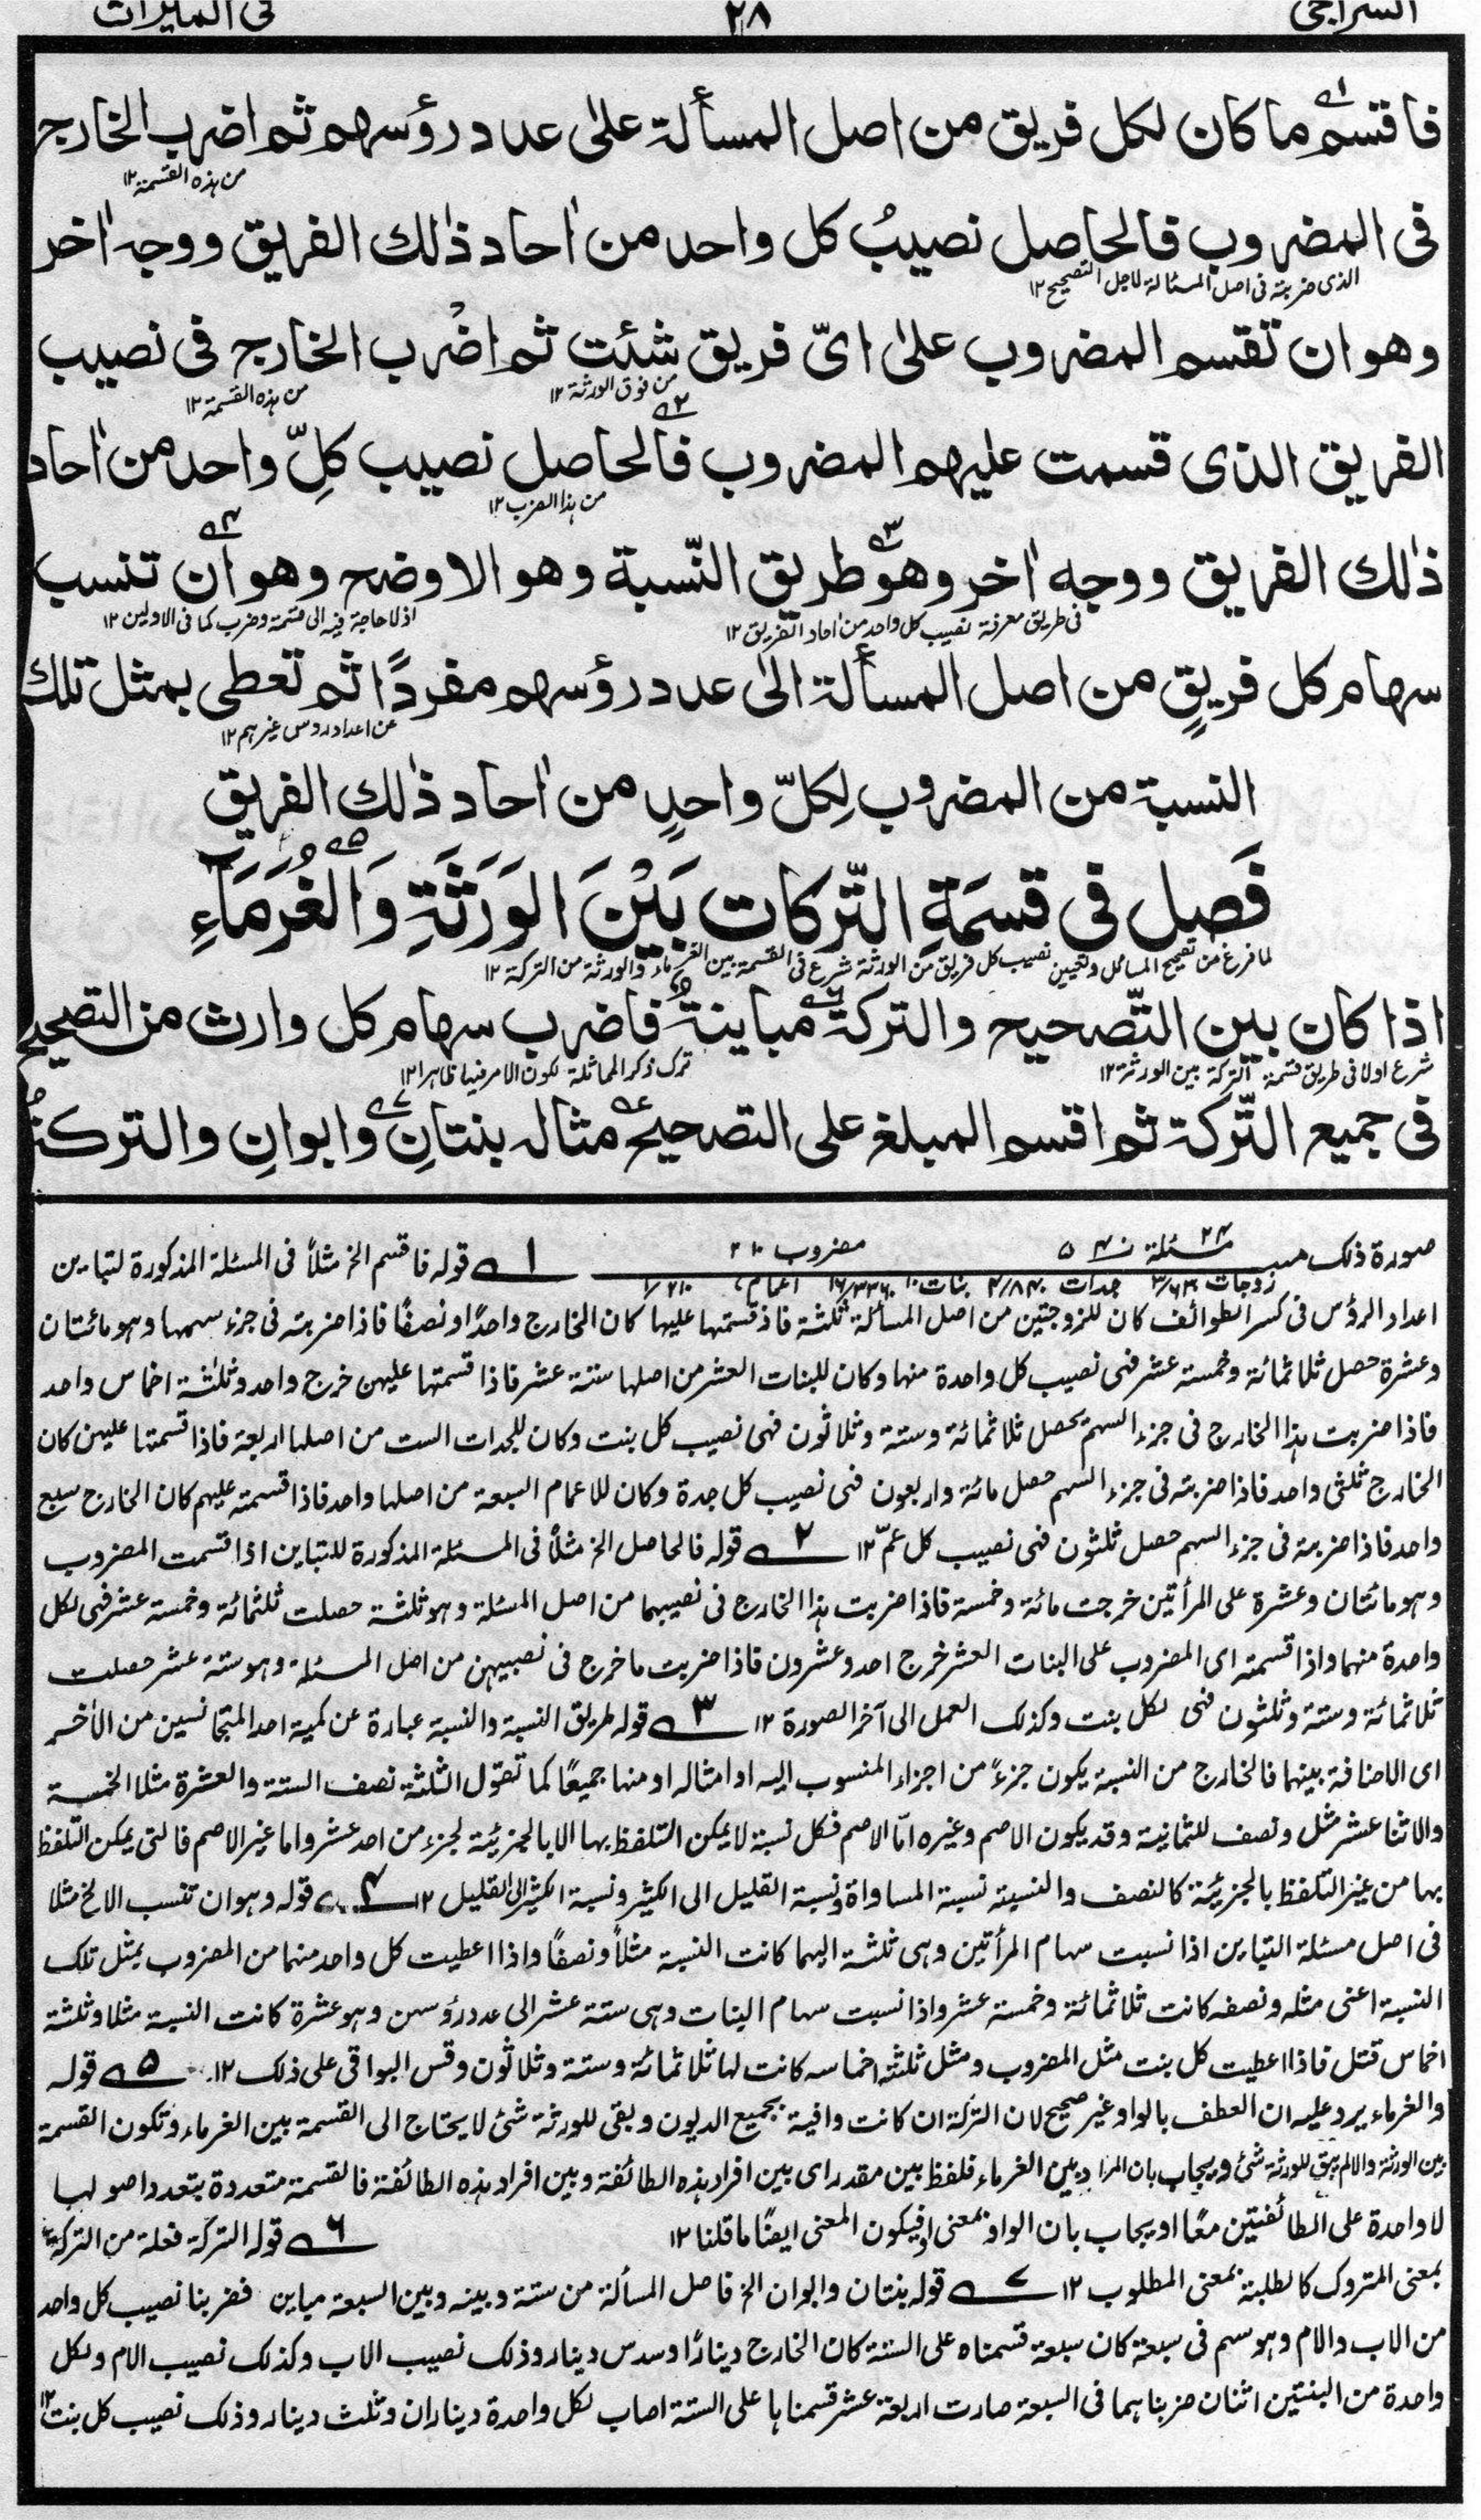 السراجی ٢٨ فی المیراث
فاقسم ما كان لكل فریق من اصل المسألة علیٰ عدد رؤسهم ثم اضرب الخارج
من ہذه القسمة ١٢
فی المضروب فالحاصل نصیبُ كل واحد من اٰحاد ذٰلك الفریق ووجه اٰخر
الذی ضربته فی اصل المسئالة لاجل التصحیح ١٢
وهو ان تقسم المضروب علیٰ ایّ فریق شئت ثم اضْرب الخارج فی نصیب
من فوق الورثة ١٢ من ہذه القسمة ١٢
الفریق الذی قسمت علیهم المضروب فالحاصل نصیب كلِّ واحد من اٰحاد
من ہذا الضرب ١٢
ذٰلك الفریق ووجه اٰخر وهو طریق النّسبة وهو الاوضح وهو ان تنسب
فی طریق معرفة نصیب كل واحد من اٰحاد الفریق ١٢ اذ لا حاجة فیه الی قسمة وضرب كما فی الاولین ١٢
سهام كل فریقٍ من اصل المسألة الیٰ عدد رؤسهم مفردًا ثم تعطی بمثل تلك
عن اعداد رءوس غیرہم ١٢
النسبة من المضروب لِكلّ واحدٍ من اٰحاد ذٰلك الفریق
فَصل فی قسمَةِ التّركات بَیْنَ الوَرَثَةِ وَالغُرَمَاءِ
لما فرغ من تصحیح المسائل وتعیین نصیب كل فریق من الورثة شرع فی القسمة بین الغرماء والورثة من التركة ١٢
اذا كان بین التّصحیح والتركة مباینةٌ فاضرب سهام كل وارث من التصحیح
شرع اولا فی طریق قسمة التركة بین الورثة ١٢ ترك ذكر المماثلة لكون الامر فیها ظاهرا ١٢
فی جمیع التّركة ثم اقسم المبلغ علی التصحیح مثاله بنتانِ وابوانِ والتركة
صورة ذلك مسئلة ٢٤ مضروب ٢١٠ ١ قوله فاقسم الخ مثلاً فی المسئلة المذكورة لتباین
زوجات جدات بنات ١٠ اعمام ٧
اعداد الرؤس فی كسر الطوائف كان للزوجتین من اصل المسألة ثلثة فاذ قسمتها علیها كان الخارج واحدًا ونصفًا فاذا ضربته فی جزء سهمها وهو مائتان
وعشرة حصل ثلاثمائة وخمسة عشر فهی نصیب كل واحدة منها وكان للبنات العشر من اصلها ستة عشر فاذا قسمتها علیهن خرج واحد وثلٰثة اخماس واحد
فاذا ضربت ہذا الخارج فی جزء السهم یحصل ثلاثمائة وستة وثلاثون فهی نصیب كل بنت وكان للجدات الست من اصلها اربعة فاذا قسمتها علیهن كان
الخارج ثلثی واحد فاذا ضربته فی جزء السهم حصل مائة واربعون فهی نصیب كل جدة وكان للاعمام السبعة من اصلها واحد فاذا قسمته علیهم كان الخارج سبع
واحد فاذا ضربته فی جزء السهم حصل ثلثون فهی نصیب كل عمّ ١٢ ٢ قوله فالحاصل الخ مثلاً فی المسئلة المذكورة للتباین اذا قسمت المضروب
وهو مائتان وعشرة علی المرأتین خرجت مائة وخمسة فاذا ضربت ہذا الخارج فی نصیبهما من اصل المسئلة وهو ثلثة حصلت ثلثمائة وخمسة عشر فهی لكل
واحدة منهما واذا قسمته ای المضروب علی البنات العشر خرج احد وعشرون فاذا ضربت ما خرج فی نصیبهن من اصل المسئلة وهو ستة عشر حصلت
ثلاثمائة وستة وثلثون فهی لكل بنت وكذلك العمل الی آخر الصورة ١٢ ٣ قوله طریق النسبة والنسبة عبارة عن كمیة احد المتجانسین من الآخر
ای الاضافة بینهما فالخارج من النسبة یكون جزءً من اجزاء المنسوب الیه او امثاله او منها جمیعًا كما تقول الثلثة نصف الستة والعشرة مثلا الخمسة
والاثنا عشر مثل ونصف للثمانیة وقد یكون الاصم وغیره امّا الاصم فكل نسبة لا یمكن التلفظ بها الا بالجزئیة لجزء من احد عشر واما غیر الاصم فالتی یمكن التلفظ
بها من غیر التلفظ بالجزئیة كالنصف والنسبة نسبة المساواة ونسبة القلیل الی الكثیر ونسبة الكثیر الی القلیل ١٢ ٤ قوله وهو ان تنسب الالخ مثلا
فی اصل مسئلة التباین اذا نسبت سهام المرأتین وهی ثلثة الیهما كانت النسبة مثلاً ونصفًا واذا اعطیت كل واحد منهما من المضروب بمثل تلك
النسبة اعنی مثله ونصفه كانت ثلاثمائة وخمسة عشر واذا نسبت سهام البنات وهی ستة عشر الی عدد رؤسهن وهو عشرة كانت النسبة مثلا وثلثة
اخماس قتل فاذا اعطیت كل بنت مثل المضروب ومثل ثلثة اخماسه كانت لها ثلاثمائة وستة وثلاثون وقس البواقی علی ذلك ١٢ ٥ قوله
والغرماء یرد علیه ان العطف بالواو غیر صحیح لان التركة ان كانت وافیة بجمیع الدیون وبقی للورثة شئ لا یحتاج الی القسمة بین الغرماء وتكون القسمة
بین الورثة والا لم یبق للورثة شئ ویجاب بان المراد بین الغرماء فلفظ بین مقدر ای بین افراد ہذه الطائفة وبین افراد ہذه الطائفة فالقسمة متعددة بتعدد اصولها
لا واحدة علی الطائفتین معًا او یجاب بان الواو بمعنی او فیكون المعنی ایضًا ما قلنا ١٢ ٦ قوله التركة فعلة من التركة
بمعنی المتروك كالطلبة بمعنی المطلوب ١٢ ٧ قوله بنتان وابوان الخ فاصل المسألة من ستة وبینه وبین السبعة مباین فضربنا نصیب كل واحد
من الاب والام وهو سهم فی سبعة كان سبعة قسمناه علی الستة كان الخارج دینارًا وسدس دینار وذلك نصیب الاب وكذلك نصیب الام ولكل
واحدة من البنتین اثنان ضربناهما فی السبعة صارت اربعة عشر قسمناها علی الستة اصاب لكل واحدة دیناران وثلث دینار وذلك نصیب كل بنت ١٢